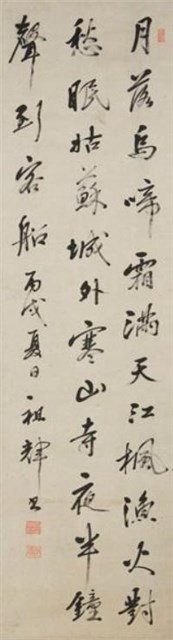 月落烏啼霜滿天江楓漁火對
愁眠姑蘇城外寒山寺夜半鐘
聲到客船丙戌夏日祖輝書